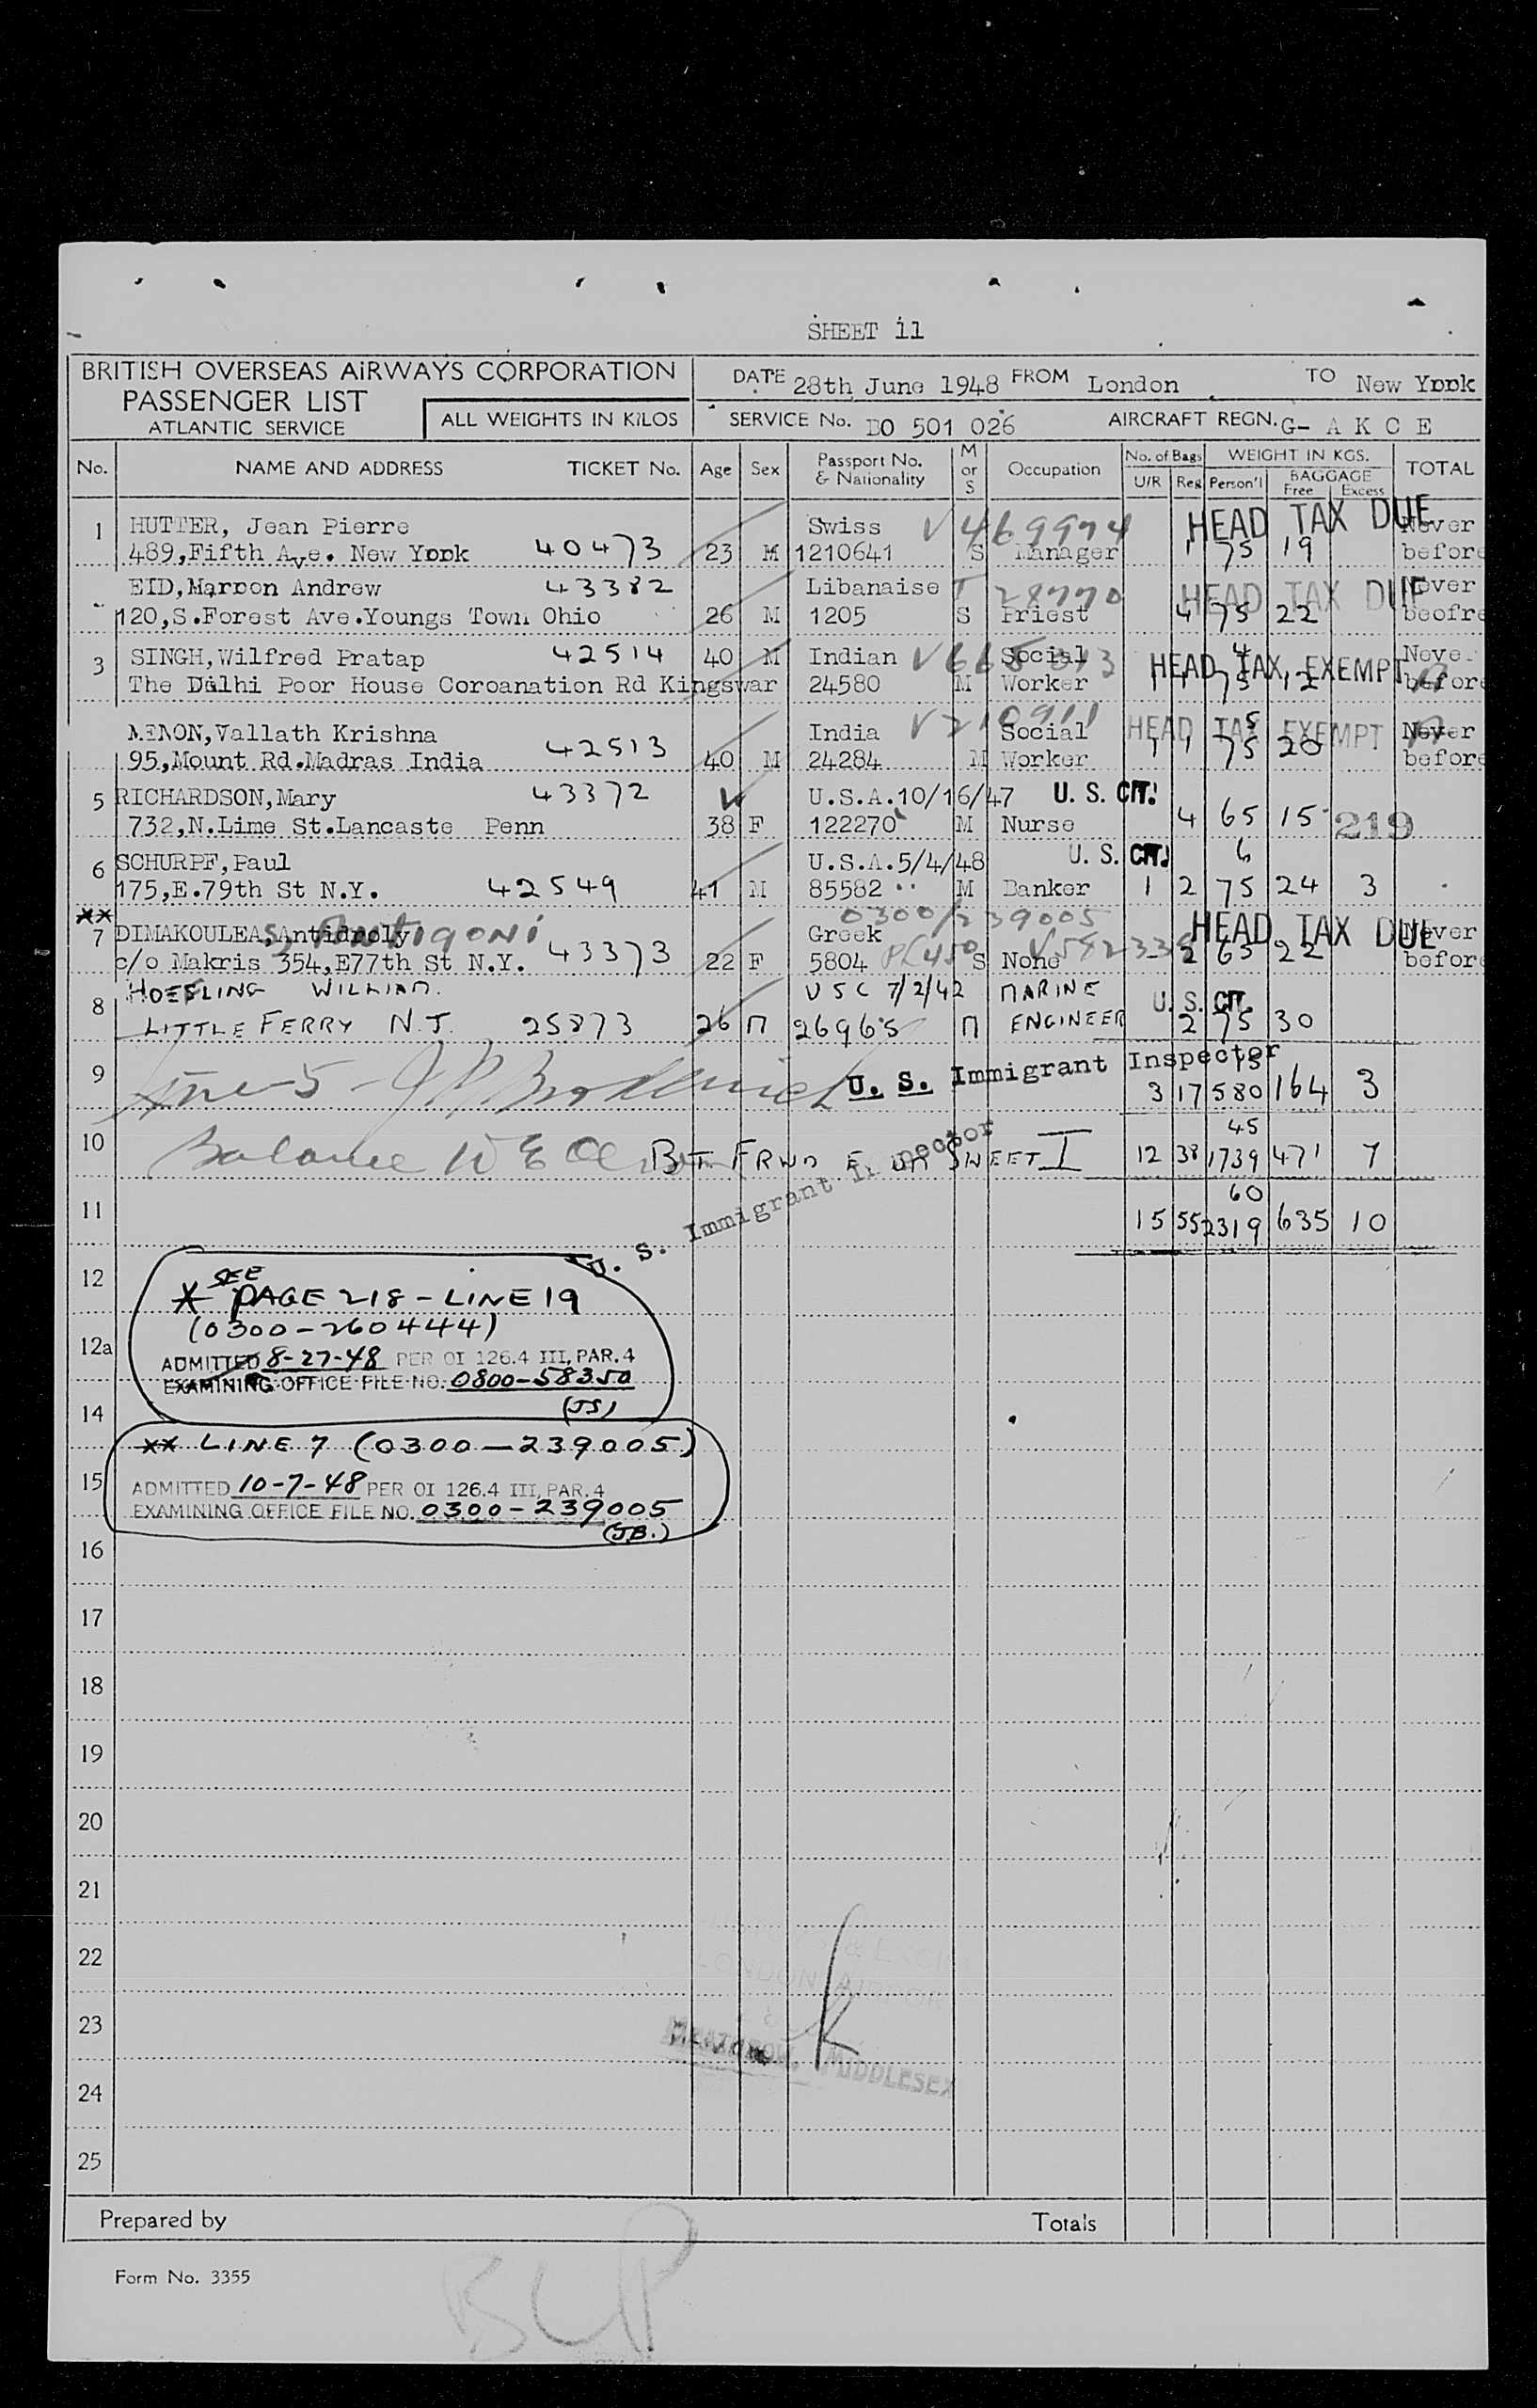 SHEET 11
BRITISH OVERSEAS AIRWAYS CORPORATION
PASSENGER LIST
ATLANTIC SERVICE
ALL WEIGHTS IN KILOS
DATE 28th June 1948 FROM London TO New York
SERVICE No. BO 501 026 AIRCRAFT REGN. G- A K C E
No. NAME AND ADDRESS TICKET No. Age Sex Passport No. & Nationality M or S Occupation No. of Bags U/R Reg WEIGHT IN KGS. Person'l BAGGAGE Free Excess TOTAL
1 HUTTER, Jean Pierre Swiss V469974 HEAD TAX DUE Never
489,Fifth Ave. New York 40473 23 M 1210641 S Manager 1 75 19 before
EID,Marron Andrew 43382 Libanaise T 28770 HEAD TAX DUE Never
120,S.Forest Ave.Youngs Town Ohio 26 M 1205 S Priest 4 75 22 beofre
3 SINGH,Wilfred Pratap 42514 40 M Indian Social 4 HEAD TAX EXEMPT Neve
The Dalhi Poor House Coroanation Rd Kingswar 24580 M Worker 1 1 75 12 before
MENON,Vallath Krishna India V210911 Social 5 HEAD TAX EXEMPT Never
95,Mount Rd.Madras India 42513 40 M 24284 M Worker 1 1 75 20 before
5 RICHARDSON,Mary 43372 U.S.A.10/16/47 U. S. CIT.
732,N.Lime St.Lancaste Penn 38 F 122270 M Nurse 4 65 15 219
6 SCHURPF,Paul U.S.A.5/4/48 U. S. CIT. 6
175,E.79th St N.Y. 42549 41 M 85582 M Banker 1 2 75 24 3
xx 0300/239005
7 DIMAKOULEAS,Antidroly Antigoni Greek HEAD TAX DUE Never
c/o Makris 354,E77th St N.Y. 43373 22 F 5804 S None 2 63 22 before
8 HOEFLING WILLIAM. USC 7/2/42 MARINE U. S. CIT.
LITTLE FERRY N.J. 25873 26 M 26965 M ENGINEER 2 75 30
9 Line 5 - U. S. Immigrant Inspector 15
3 17 580 164 3
10 Balance BT FRWD SHEET I 45
12 38 1739 471 7
U. S. Immigrant Inspector
11 60
15 55 2319 635 10
12 SEE
* PAGE 218 - LINE 19
(0300-260444)
12a ADMITTED 8-27-48 PER OI 126.4 III, PAR. 4
EXAMINING OFFICE FILE NO. 0800-58350
14 (JS)
xx LINE 7 (0300-239005)
15 ADMITTED 10-7-48 PER OI 126.4 III, PAR. 4
EXAMINING OFFICE FILE NO. 0300-239005
(JB.)
16
17
18
19
20
21
22
LONDON AIRPORT
23
HEATHROW, MIDDLESEX
24
25
Prepared by Totals
Form No. 3355